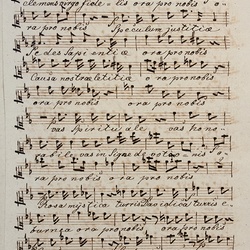 clemens virgo fide - lis ora pro nobis o -
ra pro nobis Speculum justitiæ
Sedes sapientiæ ora pro nobis
Causa nostræ letitiæ ora pro nobis
ora pro nobis ora pro nobis
vas spirituale vas hono -
rabile vas insigne devotionis o -
ra pro nobis ora pro nobis
Rosa mystica turris Davidica turris e -
burnea ora pro nobis ora pro nobis